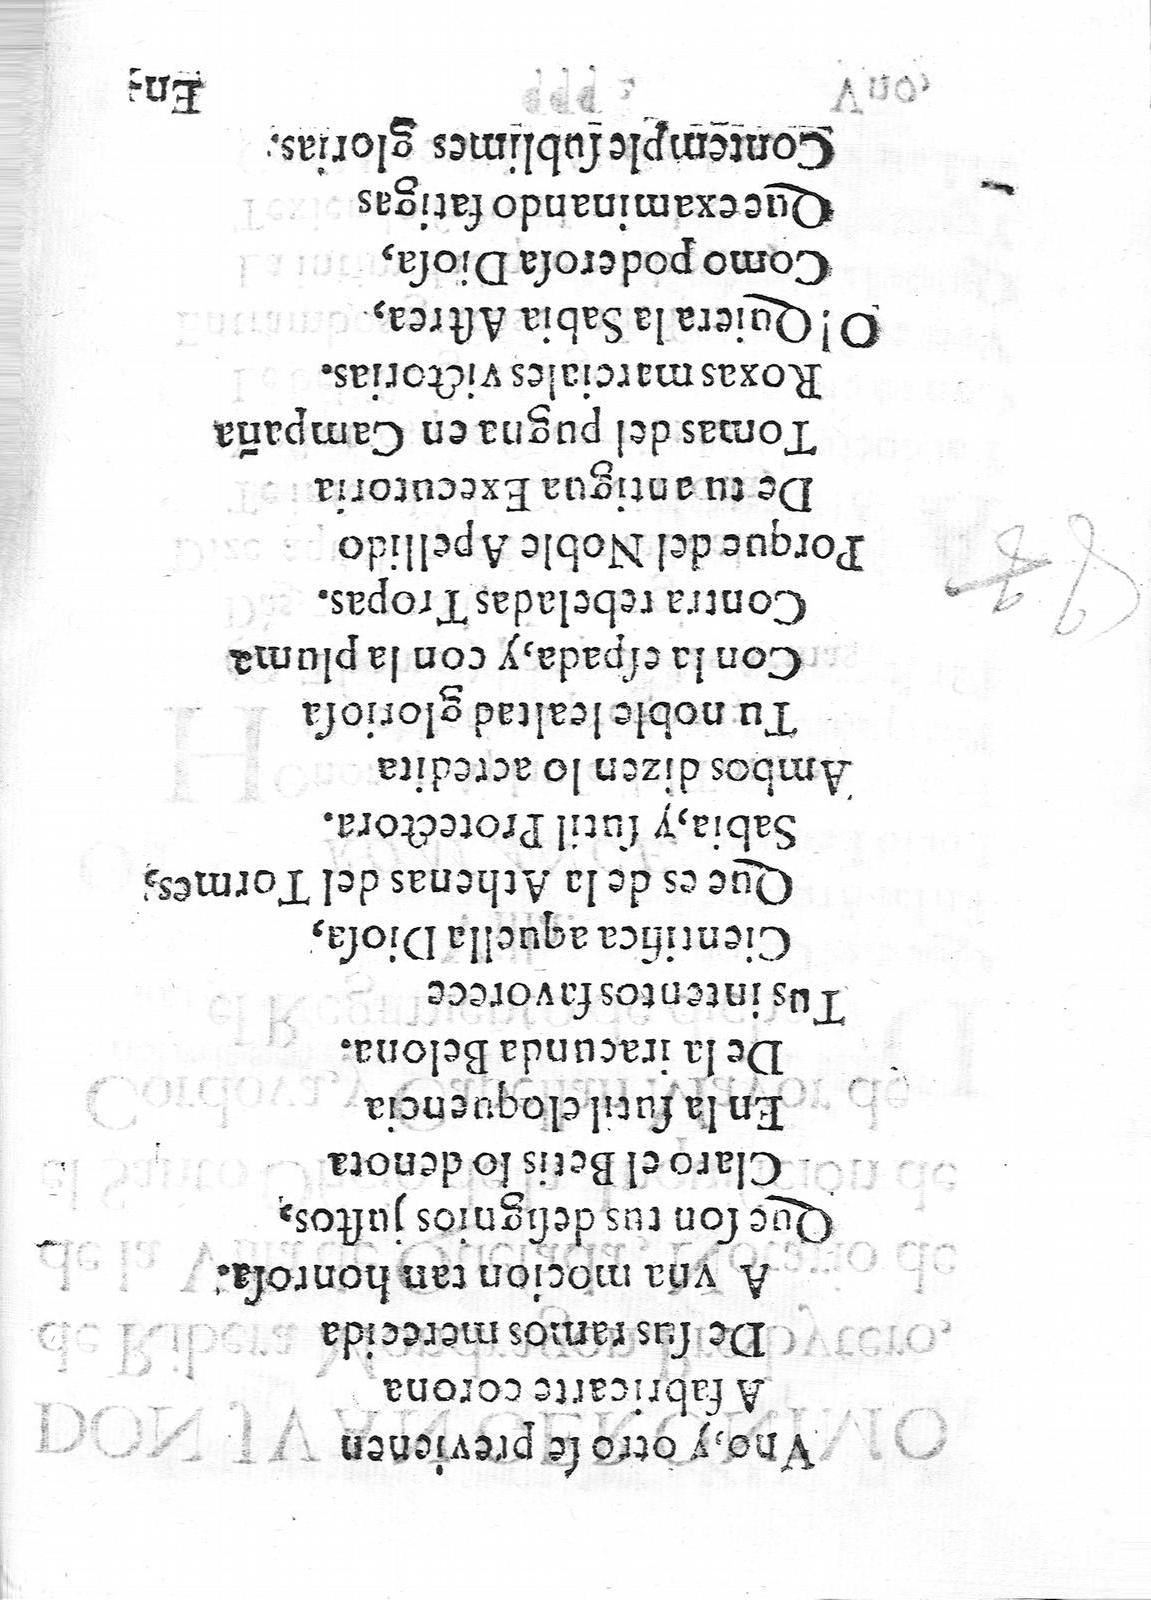 Vno, y otro ſe previenen
A fabricarte corona
De ſus ramos merecida
A vna mocion tan honroſa.
Que ſon tus deſignios juſtos,
Claro el Betis lo denota
En la ſutil eloquencia
De la iracunda Belona.
Tus intentos favorece
Cientifica aquella Dioſa,
Que es de la Athenas del Tormes,
Sabia, y ſutil Protectora.
Ambos dizen lo acredita
Tu noble lealtad glorioſa
Con la eſpada, y con la pluma
Contra rebeladas Tropas.
Porque del Noble Apellido
De tu antigua Executoria
Tomas del pugna en Campaña
Roxas marciales victorias.
O! Quiera la Sabia Aſtrea,
Como poderoſa Dioſa,
Que examinando fatigas
Contemple ſublimes glorias.
En-